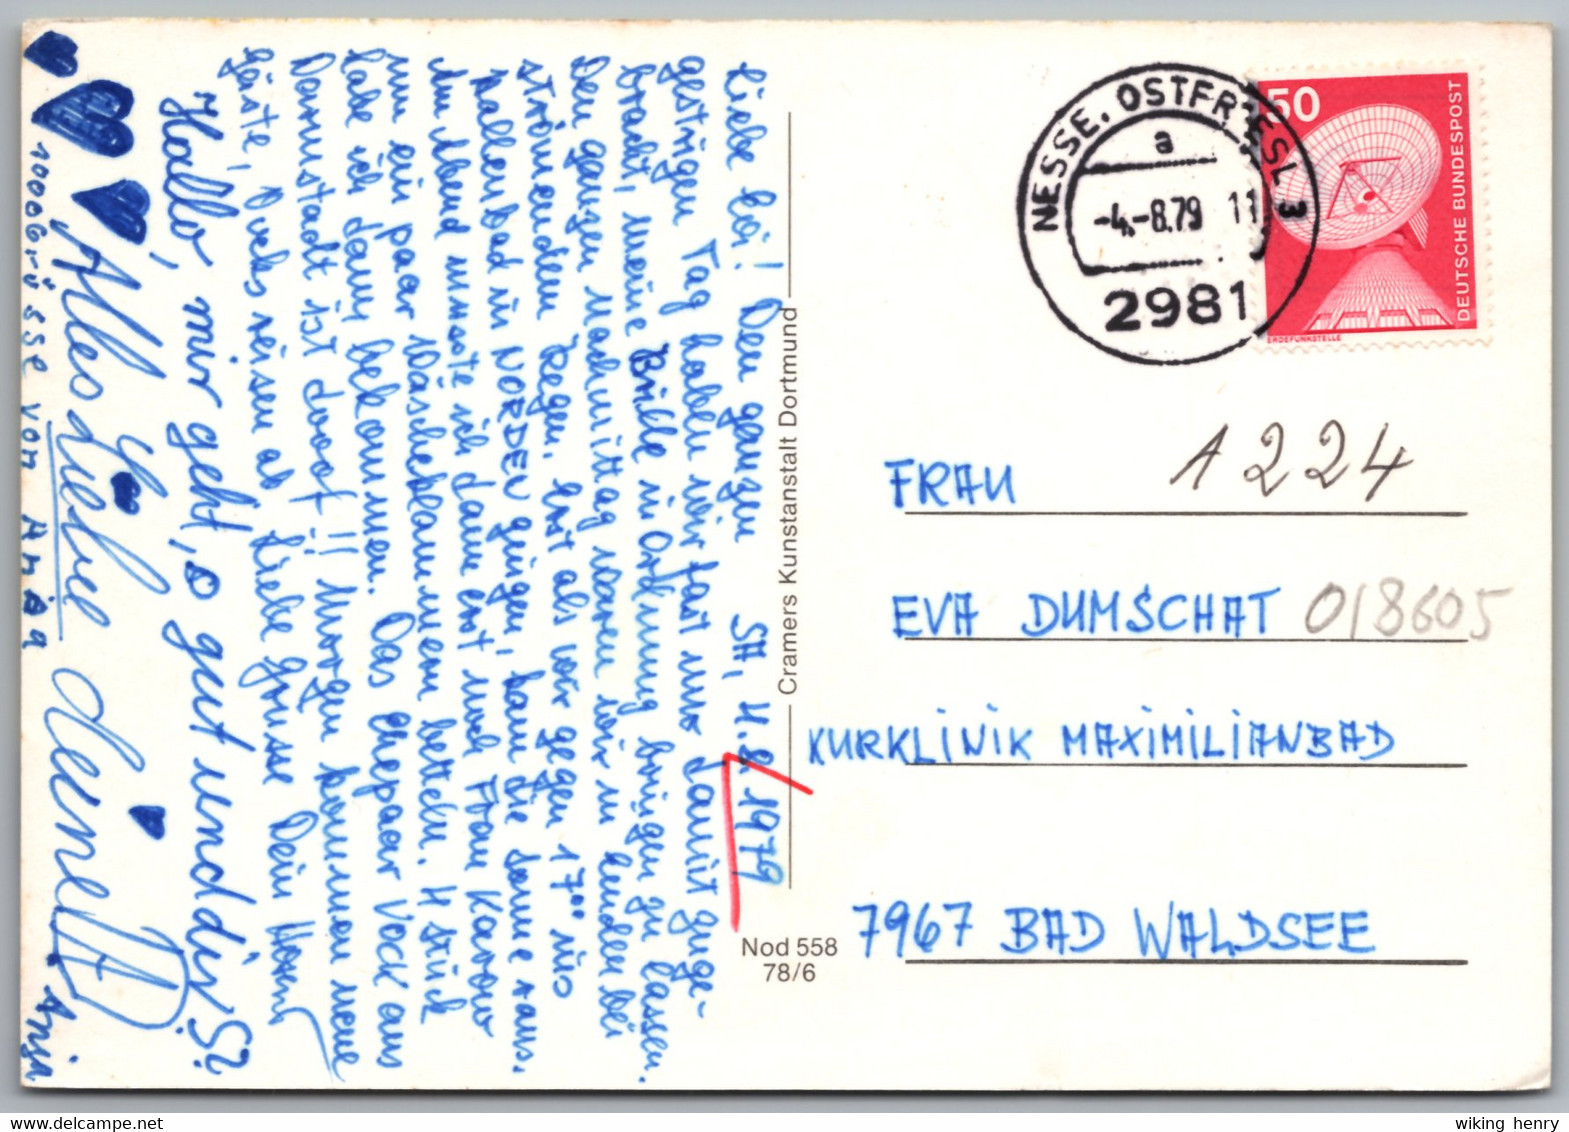 SA, 4.8.1979
Liebe Evi! Den ganzen
gestrigen Tag haben wir fast nur damit zuge-
bracht, meine Brille in Ordnung bringen zu lassen.
Den ganzen Nachmittag waren wir in Emden bei
strömendem Regen. Erst als wir gegen 17⁰⁰ ins
Wellenbad in NORDEN gingen, kam die Sonne raus.
Am Abend musste ich dann erst noch Frau Karow
um ein paar Wäscheklammern betteln. 4 Stück
habe ich dann bekommen. Das Ehepaar Vock aus
Darmstadt ist doof!! Morgen kommen neue
Gäste, Vocks reisen ab. Liebe Grüsse Dein
Hallo, mir geht's gut und dir?
Alles Liebe deine
10000 Grüsse von Anja
Anja
Cramers Kunstanstalt Dortmund
Nod 558
78/6
NESSE, OSTFRIESL 3
a
-4.-8.79 11
2981
50
DEUTSCHE BUNDESPOST
ERDEFUNKSTELLE
1224
FRAU
EVA DUMSCHAT 018605
KURKLINIK MAXIMILIANBAD
7967 BAD WALDSEE
wiking henry